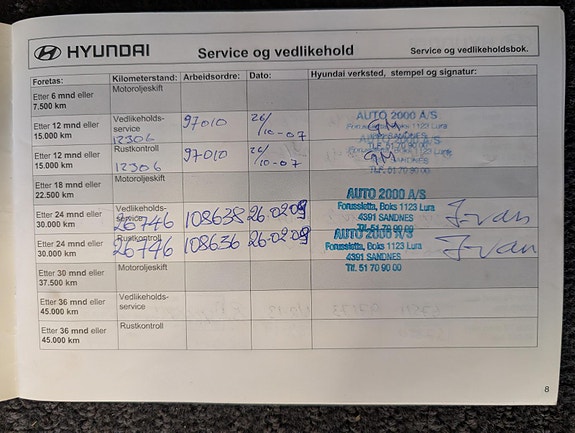 HYUNDAI Service og vedlikehold Service og vedlikeholdsbok.
Foretas: Kilometerstand: Arbeidsordre: Dato: Hyundai verksted, stempel og signatur:
Etter 6 mnd eller Motoroljeskift
7.500 km
Etter 12 mnd eller Vedlikeholds- 97010 26/ AUTO 2000 A/S
15.000 km service 12306 10-07 Boks 1123 Lura GM
SANDNES
Etter 12 mnd eller Rustkontroll 97010 26/ Boks 1123 Lura GM
15.000 km 12306 10-07 SANDNES
Tlf. 51 70 90 00
Etter 18 mnd eller Motoroljeskift
22.500 km
Etter 24 mnd eller Vedlikeholds- AUTO 2000 A/S
30.000 km service 26746 108638 26.02.09 Forussletta, Boks 1123 Lura Ivan
4391 SANDNES
Tlf. 51 70 90 00
Etter 24 mnd eller Rustkontroll AUTO 2000 A/S
30.000 km 26746 108636 26.02.09 Forussletta, Boks 1123 Lura Ivan
4391 SANDNES
Tlf. 51 70 90 00
Etter 30 mnd eller Motoroljeskift
37.500 km
Etter 36 mnd eller Vedlikeholds-
45.000 km service
Etter 36 mnd eller Rustkontroll
45.000 km
8